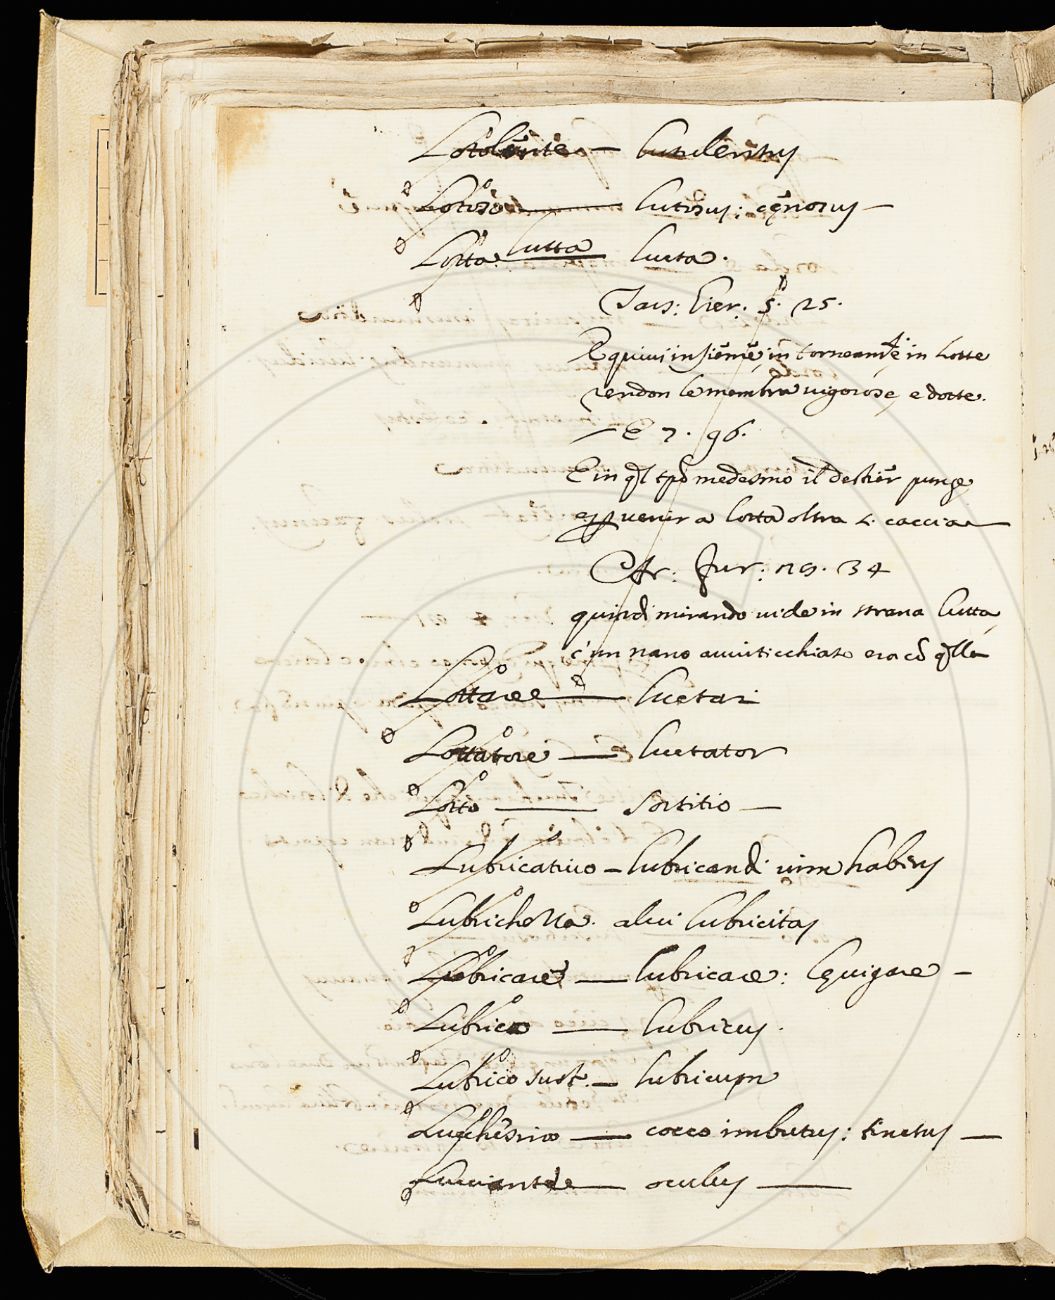 Lotolente — lutulentus
Lotoso — lutosus: cęnosus —
Lotta. lutta lucta.
Tass: Lier. 5. 25.
E quivi insieme in torneamti, e in Lotte
rendon le membra vigorose, e dotte.
E 7. 96.
E in ql tpo medesmo il destier punge
e venir a lotta oltra
Ar: Fur: 34
quindi mirando vide in strana lutta
c'un nano avviticchiato era cō qlla
Lottare — luctari
Lottatore — luctator
Lotto — sortitio —
Lubricativo — lubricandi vim habens
alvi lubricitas
Lubricare — lubricare: Lęvigare —
Lubrico — lubricus.
Lubrico sust. — lubricum
Lucchesino — cocco imbutus: tinctus —
Lucciante — oculus —